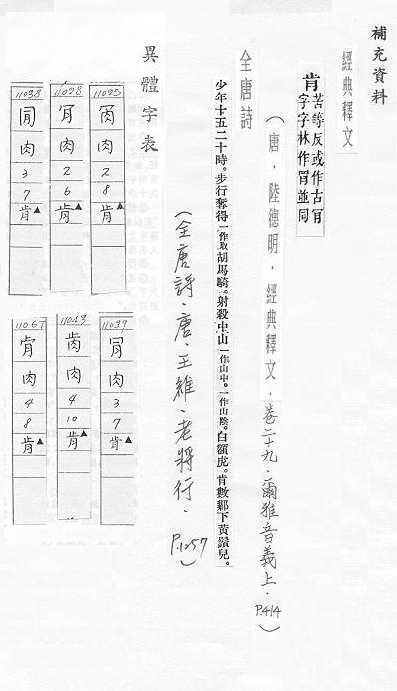 補充資料
經典釋文
肯 苦等反或作古肎
字字林作肎並同
(唐．陸德明．經典釋文．卷二十九．爾雅音義上．P.414)
全唐詩
少年十五二十時。步行奪得一作取胡馬騎。射殺中山一作山中。一作山陰。白額虎。肯數鄴下黃鬚兒。
(全唐詩．唐．王維．老將行．P.1257)
異體字表
11025
肉
2
8
肯▲
11028
肉
2
6
肯▲
11038
肉
3
7
肯▲
11039
肉
3
7
肯▲
11043
肉
4
10
肯▲
11067
肉
4
8
肯▲